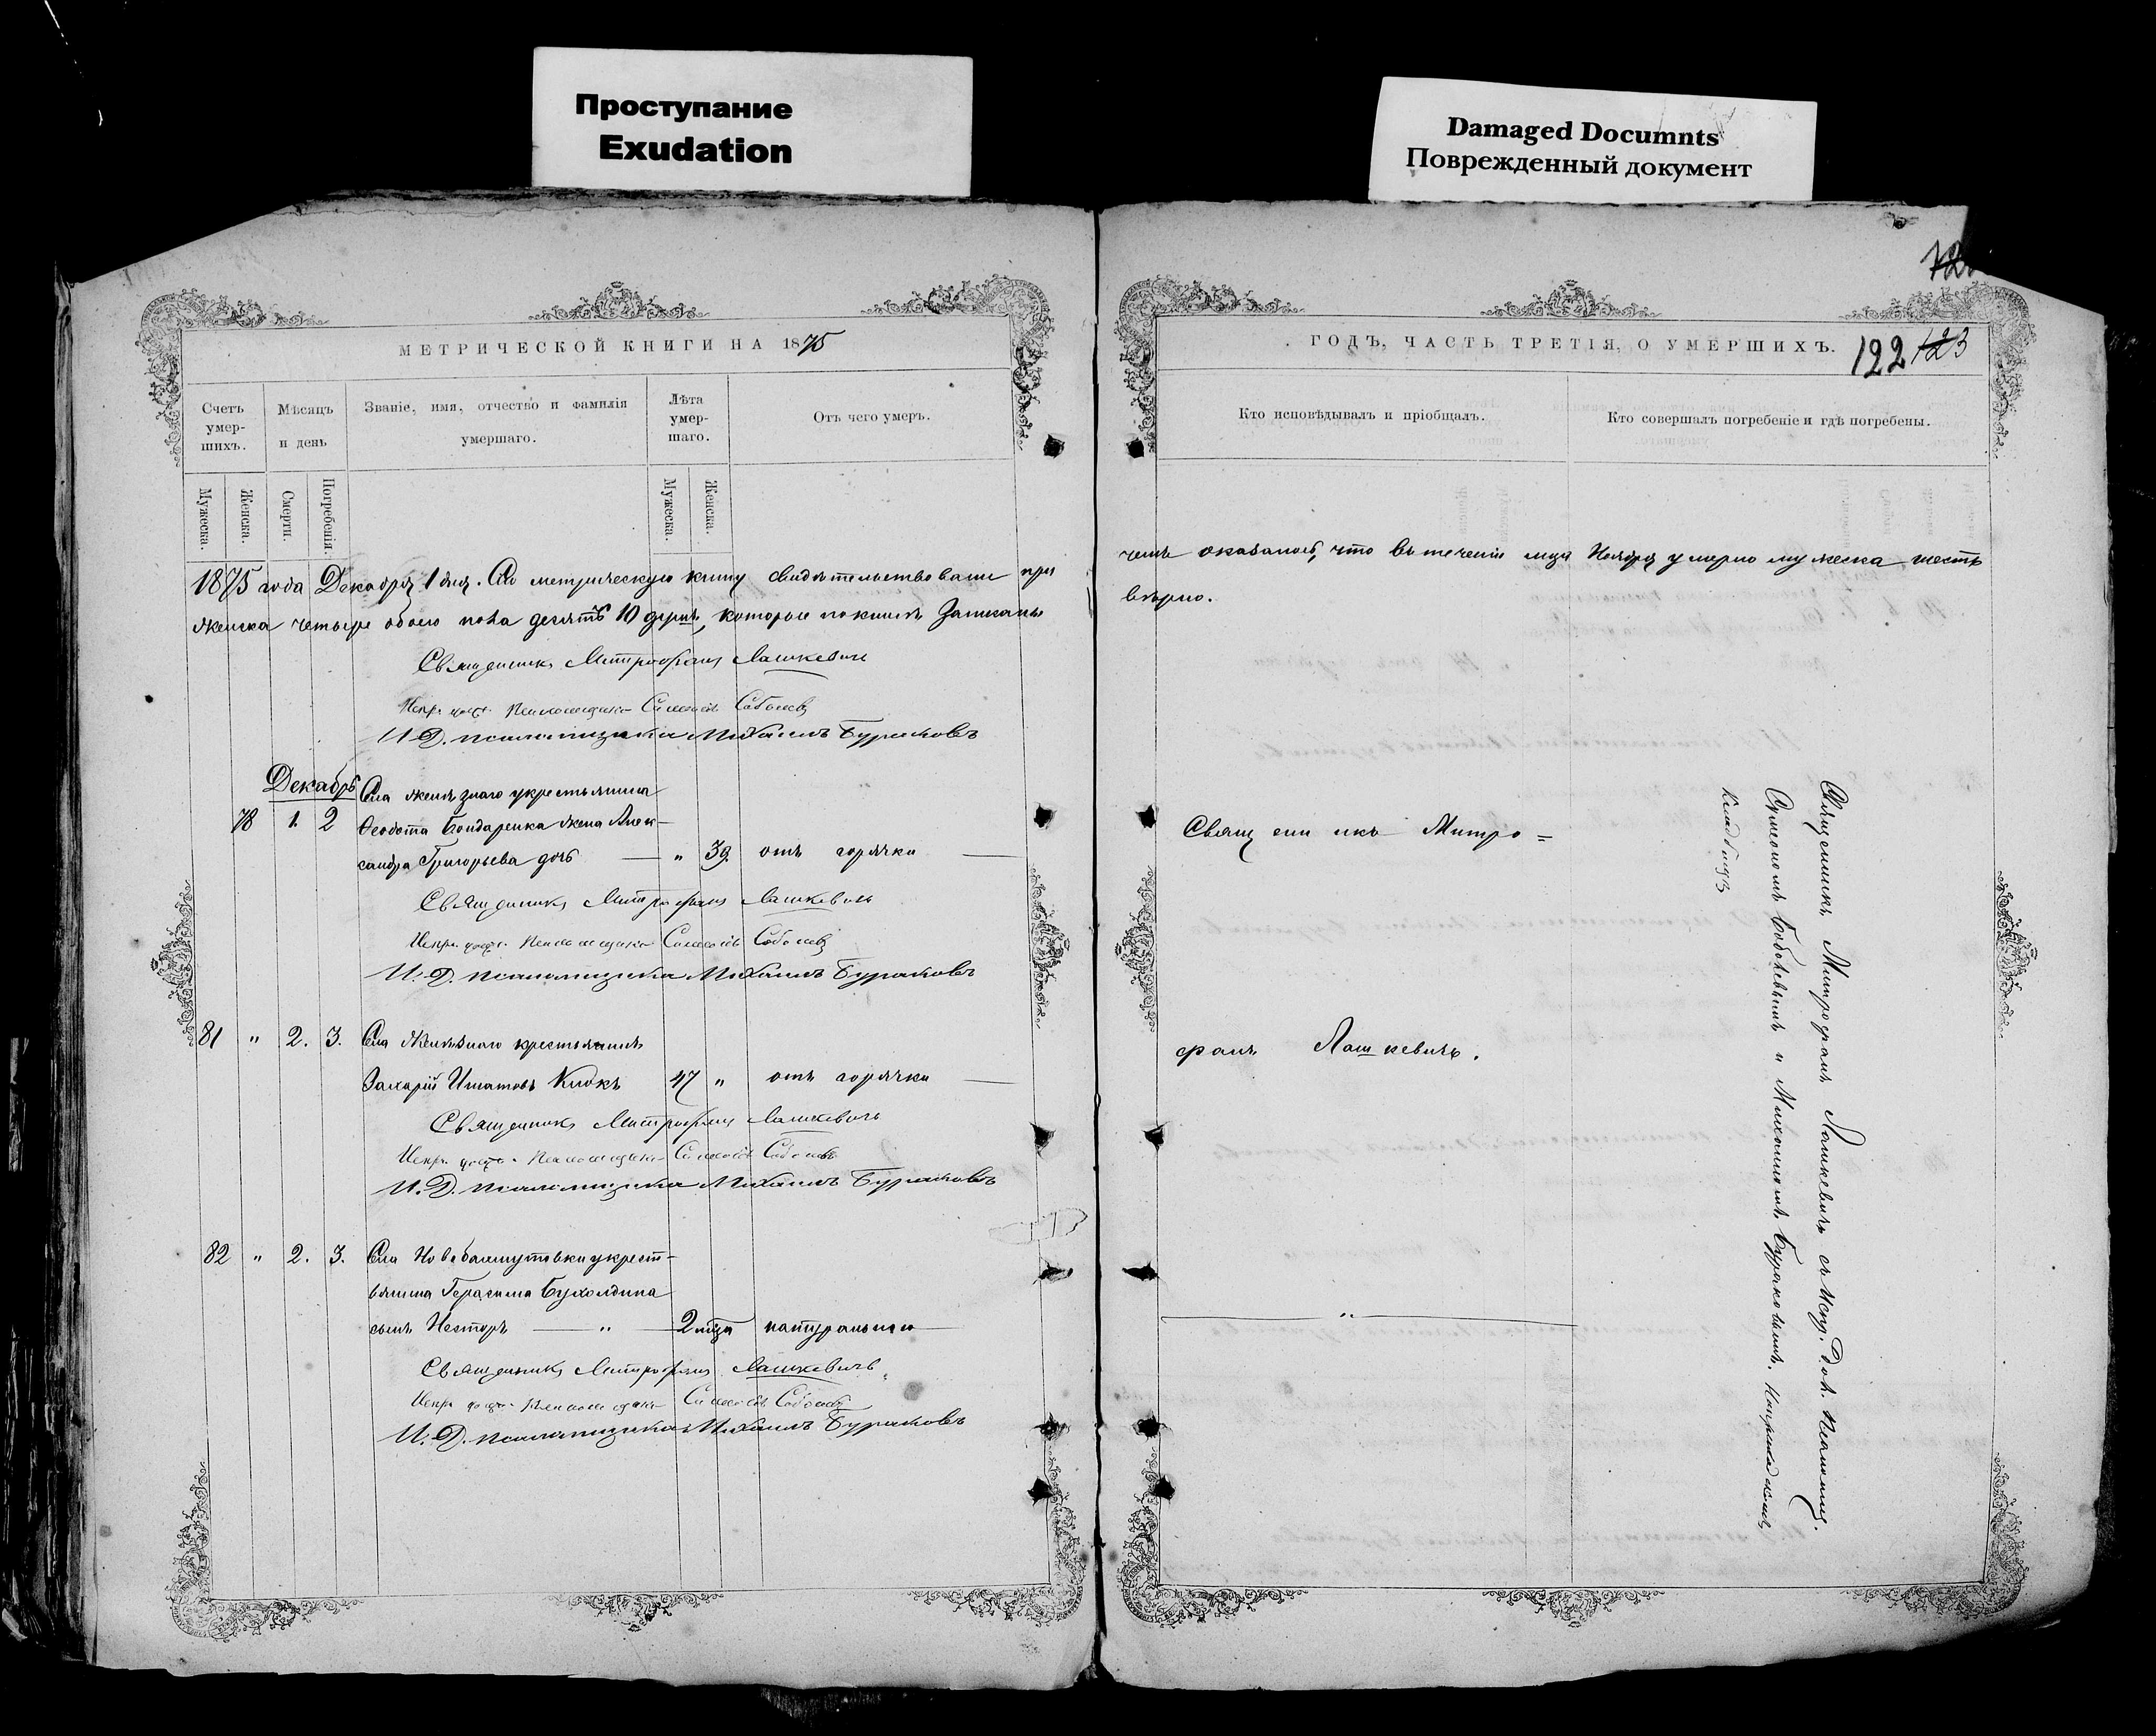 Проступание
Exudation
Damaged Documnts
Поврежденный документ
МЕТРИЧЕСКОЙ КНИГИ НА 1875
Счетъ умер-шихъ.
Мѣсяцъ и день
Званіе, имя, отчество и фамилія умершаго.
Лѣта умер-шаго.
Отъ чего умеръ.
Мужеска.
Женска.
Смерти.
Погребенія.
Мужеска.
Женска.
1875 года Декабря 1 дня. Сію метрическую книгу свидѣтельствовали при
женска четыре обоего пола десять 10 душъ, которые по книгѣ записаны
Священникъ Митрофанъ Лашкевичъ
Псаломщика Соболевъ
И. Д. псаломщика Михаилъ Бураковъ
Декабрь
Села Желѣзнаго у крестьянина
78 1. 2 Ѳеодота Бондаренка жена Алек-
сандра Григорьева дочь — " 39. отъ горячки —
Священникъ Митрофанъ Лашкевичъ
Псаломщика Соболевъ
И. Д. псаломщика Михаилъ Бураковъ
81 " 2. 3. Села Желѣзнаго крестьянинъ
Захарій Игнатовъ Кнокъ 47 " отъ горячки —
Священникъ Митрофанъ Лашкевичъ
Псаломщика Соболевъ
И. Д. псаломщика Михаилъ Бураковъ
82 " 2. 3. Села Новобахмутовки у крест-
ьянина Герасима
сынъ Несторъ — " — 2 мца натурально —
Священникъ Митрофанъ Лашкевичъ
Псаломщика Соболевъ
И. Д. псаломщика Михаилъ Бураковъ
ГОДЪ, ЧАСТЬ ТРЕТІЯ, О УМЕРШИХЪ.
122 123
Кто исповѣдывалъ и пріобщалъ.
Кто совершалъ погребеніе и гдѣ погребены.
чемъ оказалось, что въ теченіи мца Ноября умерло мужеска шесть
вѣрно.
Священникъ Митро=
фанъ Лашкевичъ.
"
Священникъ Митрофанъ Лашкевичъ съ Испр. Дол. Псаломщ.
Соболевымъ и Михаиломъ Бураковымъ. На приходскомъ
Кладбищѣ